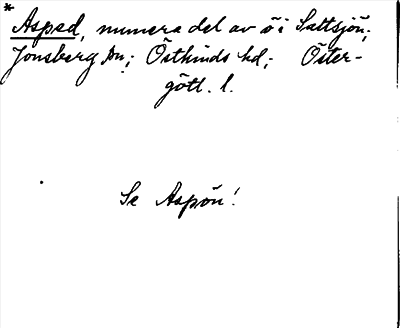 * Asped, numera del av ö i Saltsjön;
Jonsberg sn; Östkinds hd; Öster-
götl. l.
Se Aspön!